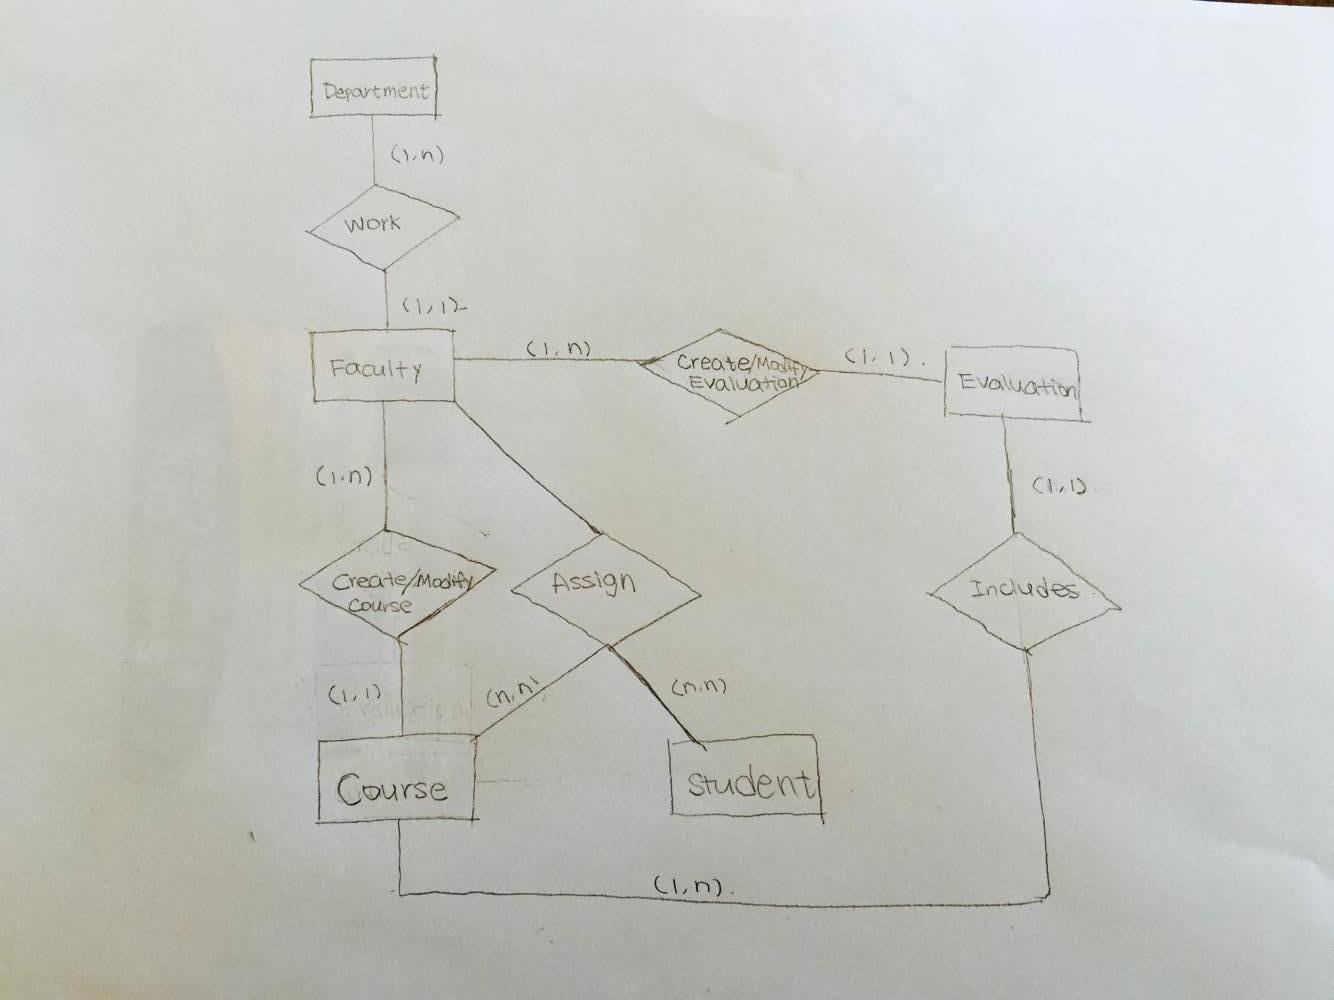 Department
(1,n)
Work
(1,1)
Faculty
(1,n)
Create/Modify
Evaluation
(1,1).
Evaluation
(1,n)
(1,1).
Create/Modify
Course
Assign
Includes
(1,1)
(n,n)
(n,n)
Course
Student
(1,n).